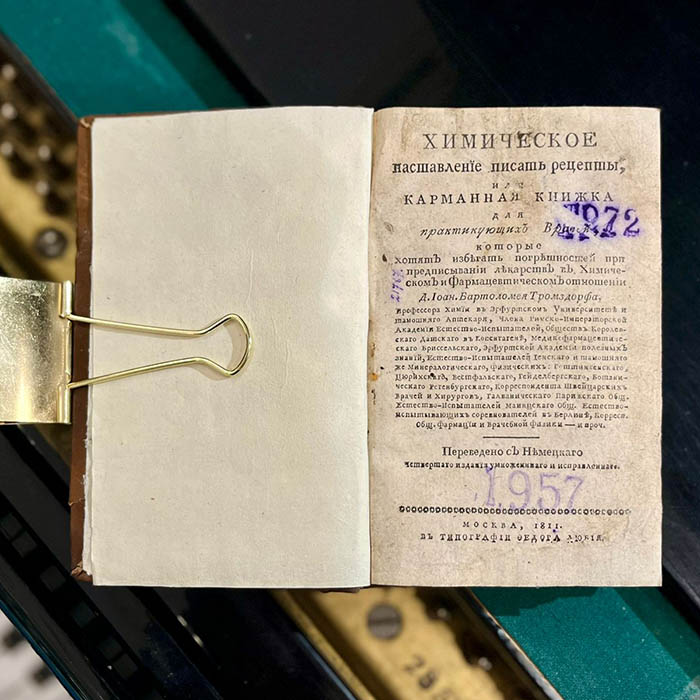 ХИМИЧЕСКОЕ
наставленіе писать рецепты,
или
КАРМАННАЯ КНИЖКА
для
практикующихъ Врачей,
которые
хотятъ избѣгать погрѣшностей при
предписываніи лѣкарствъ въ Химиче-
скомъ и Фармацевтическомъ отношеніи
Д. Іоан. Бартоломея Тромздорфа,
Профессора Химіи въ Эрфуртскомъ Университетѣ и
тамошняго Аптекаря, Члена Римско-Императорской
Академіи Естество-Испытателей, Обществъ Королев-
скаго Датскаго въ Копенгагенѣ, Медикофармацевтиче-
скаго Бриссельскаго, Эрфуртской Академіи полезныхъ
знаній, Естество-Испытателей Іенскаго и тамошняго
же Минералогическаго, Физическихъ: Геттингенскаго
Цюрихскаго, Вестфальскаго, Гейдельбергскаго, Ботани-
ческаго Регенбургскаго, Корреспондента Швейцарскихъ
Врачей и Хирурговъ, Галваническаго Парижскаго Общ.
Естество-Испытателей Маинцскаго Общ. Естество-
испытывающихъ соревнователей въ Берлинѣ, Корресп.
Общ. Фармаціи и Врачебной Физики — и проч.
Переведено съ Нѣмецкаго
четвертаго изданія умноженнаго и исправленнаго.
1957
МОСКВА, 1811.
ВЪ ТИПОГРАФІИ ѲЕДОРА ЛЮБІЯ.
288